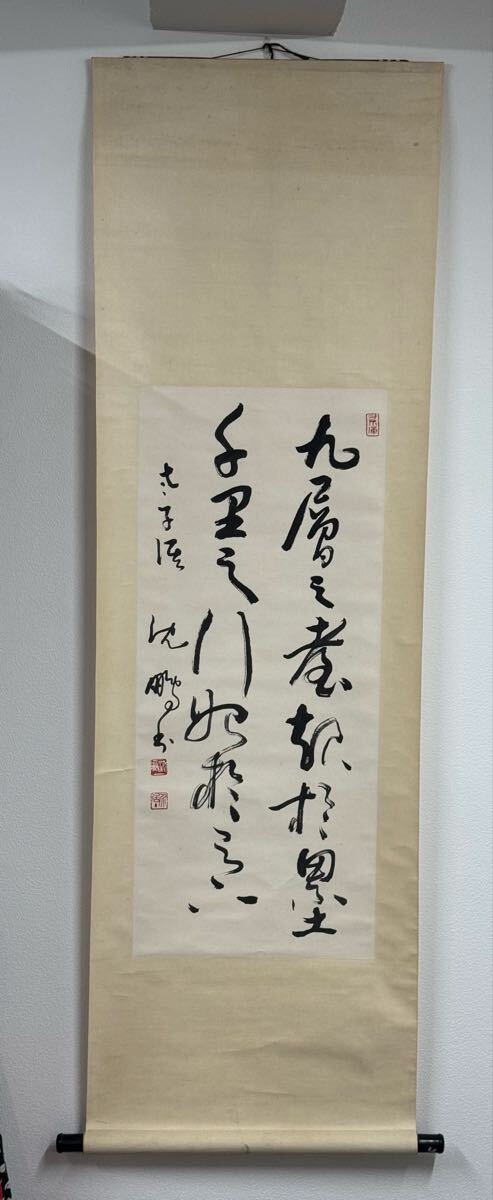 九層之臺起於累土
千里之行始於足下
老子語 沈鵬書